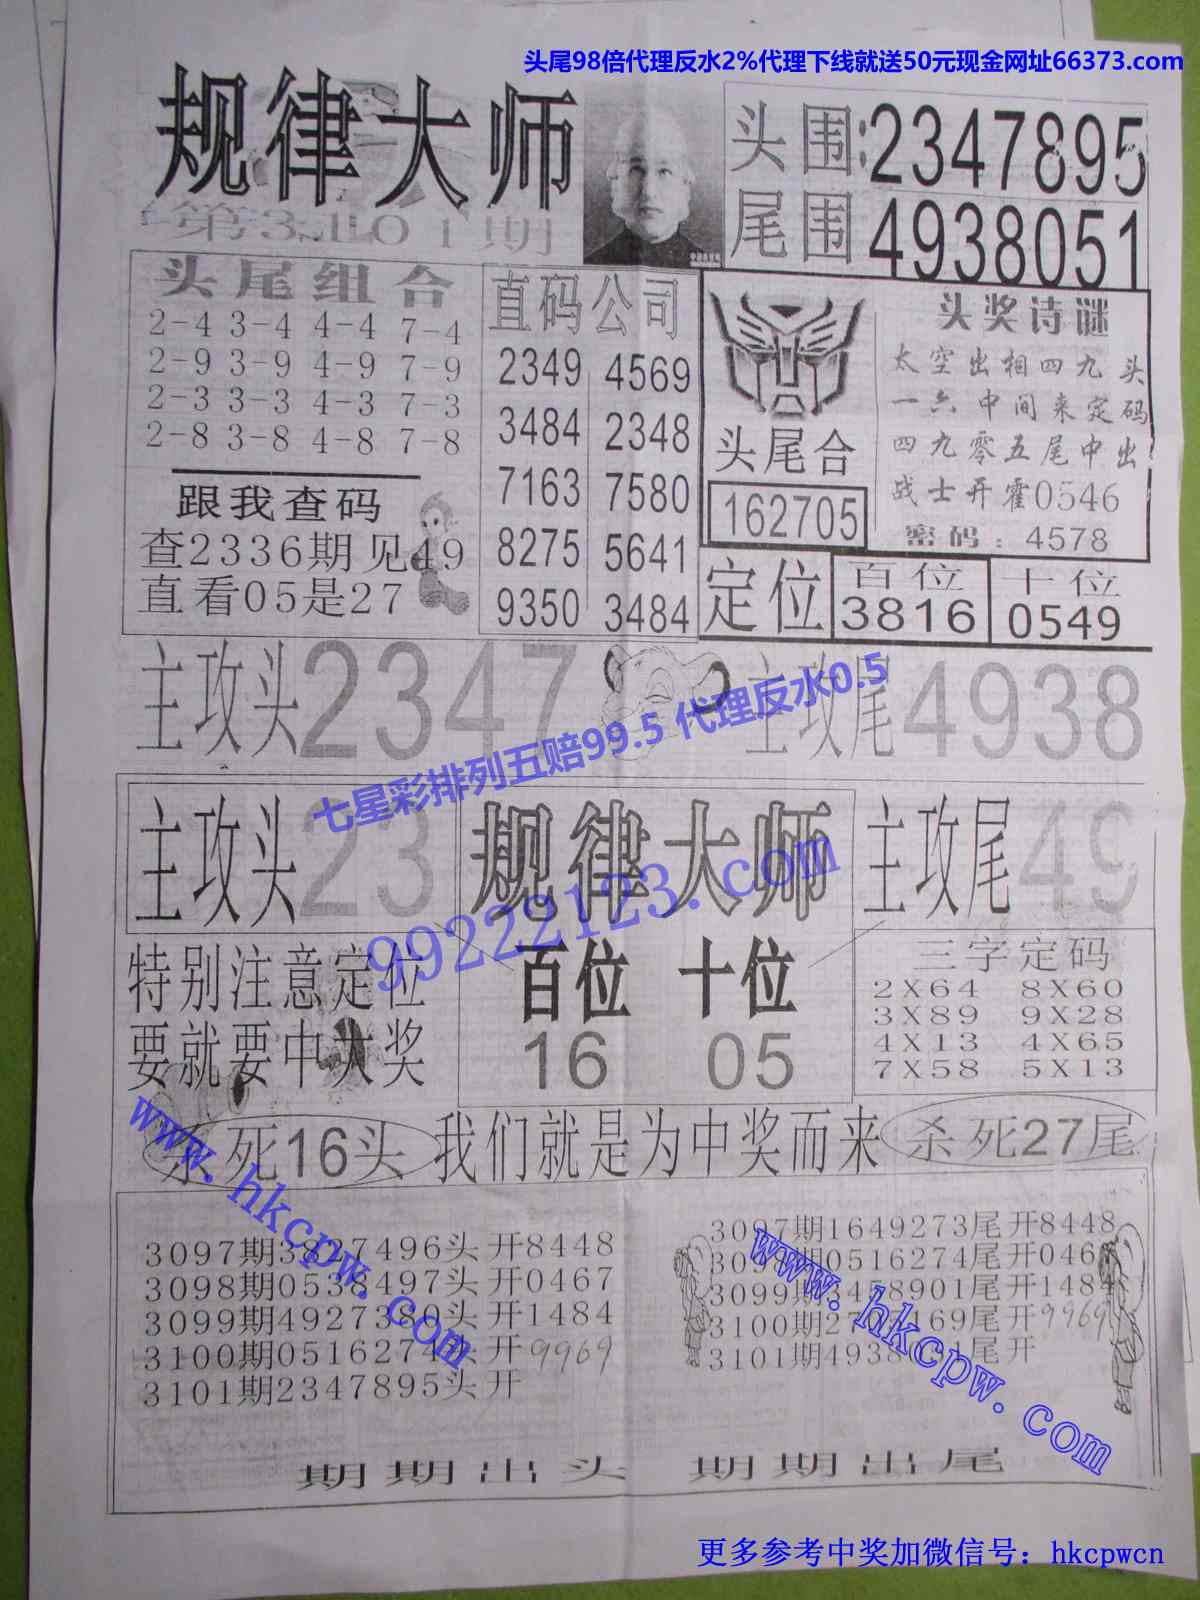 头尾98倍代理反水2%代理下线就送50元现金网址66373.com
规律大师
第3101期
头围:2347895
尾围 4938051
头尾组合
2-4 3-4 4-4 7-4
2-9 3-9 4-9 7-9
2-3 3-3 4-3 7-3
2-8 3-8 4-8 7-8
跟我查码
查2336期见49
直看05是27
直码公司
2349 4569
3484 2348
7163 7580
8275 5641
9350 3484
头尾合
162705
头奖诗谜
太空出相四九头
一六中间来定码
四九零五尾中出
战士开霍0546
密码:4578
定位
百位
3816
十位
0549
主攻头2347
主攻尾4938
七星彩排列五赔99.5 代理反水0.5
主攻头23
规律大师
主攻尾49
99222123.com
特别注意定位
要就要中大奖
百位 十位
16 05
三字定码
2X64 8X60
3X89 9X28
4X13 4X65
7X58 5X13
杀死16头
我们就是为中奖而来
杀死27尾
www.hkcpw.com
3097期3827496头开8448
3098期0538497头开0467
3099期4927380头开1484
3100期0516274头开9969
3101期2347895头开
3097期1649273尾开8448
3098期0516274尾开046
3099期3458901尾开1484
3100期27 169尾开9969
3101期4938 尾开
www.hkcpw.com
期期出头 期期出尾
更多参考中奖加微信号：hkcpwcn